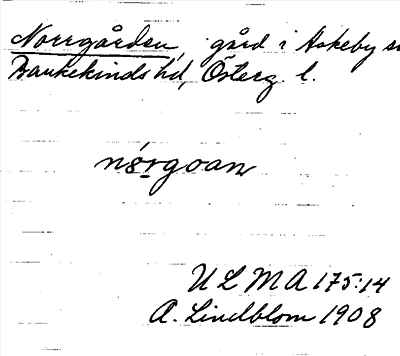 Norrgården, gård i Askeby s
Bankekinds hd, Österg. l.
nǿrgoan
U L M A 175:14
A. Lindblom 1908